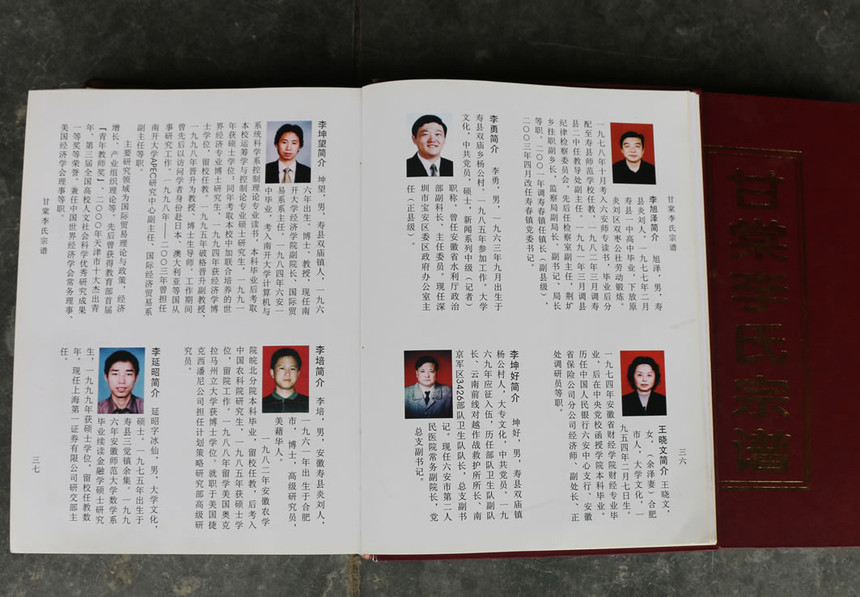 甘棠李氏宗谱
李旭泽简介 旭泽，男，寿
县炎刘人，一九七七年二月
寿县一中高中毕业，下放原
炎刘区双枣公社劳动锻炼。
一九七八年十月考入六安师专读书，毕业后分
配至寿县师范学校任教，一九八二年三月调寿
县二中任教导处副主任，一九九一年三月调县
纪律检察委员会，先后任检察室副主任，荆圹
乡挂职副乡长，监察局副局长、副书记、局长
等职。二〇〇一年调寿春镇任镇长（副县级），
二〇〇三年四月改任寿春镇党委书记。
李勇简介 李勇，男，一九六三年九月出生于
寿县双庙乡杨公村，一九八五年参加工作，大学
文化，中共党员，硕士，新闻系列中级（记者）
职称，曾任安徽省水利厅政治
部副科长、主任委员，现任深
圳市宝安区委区政府办公室主
任（正县级）。
王晓文简介 王晓文，
女，（余泽妻）合肥
市人，大学文化，一
九五四年二月七日生，
一九七四年安徽省财经学院财经专业毕
业，后在中央党校函授学院本科毕业。
历任中国人民银行六安中心支行，安徽
省保险公司分公司经济师、副处长、正
处调研员等职。
李坤好简介 坤好，男，寿县双庙镇
杨公村人，大专文化，中共党员，一九
六九年应征入伍，历任部队卫生队副队
长、云南前线对越作战救护所所长、南
京军区3426部队卫生队队长，总支副书
记，现任六安市第二人
民医院常务副院长，党
总支副书记。
三六
李坤望简介 坤望，男，寿县双庙镇人，一九六
六年出生，博士，教授，现任南
开大学经济学院副院长，国际贸
易系系主任。一九八四年六安一
中毕业，考入南开大学计算机与
系统科学系控制理论专业读书，本科毕业后考取
本校运筹学与控制论专业硕士研究生，一九九一
年获硕士学位，同年考取本校中加联合培养的世
界经济专业博士研究生，一九九四年获经济学博
士学位，留校任教。一九九五年破格晋升副教授，
一九九八年晋升为教授、博士生导师。工作期间
曾先后以访问学者身份赴日本、澳大利亚等国从
事研究工作。一九九八年——二〇〇三年曾担任
南开大学APEC研究中心副主任、国际经济贸易系
副主任等职。
主要研究领域为国际贸易理论与政策，经济
增长、产业组织理论等，先后曾获得教育部首届
『青年教师奖』，二〇〇〇年天津市十大杰出青
年，第三届全国高校人文社会科学优秀研究成果
一等奖等荣誉。兼任中国世界经济学会常务理事，
美国经济学会理事等职。
李培简介 李培，男，安徽寿县炎刘人，
一九六一年出生于合肥
市，博士，高级研究员，
美籍华人。
一九八二年安徽农学
院皖北分院本科毕业，留校任教，后考入
中国农科院研究生，一九八五年获硕士学
位，留院工作。一九八八年留学美国奥克
拉马州立大学获博士学位。就职于美国捷
克西潘尼公司担任计划策略研究部高级研
究员。
李延昭简介 延昭字冰仙，男，大学文化，
硕士。一九七五年出生于
寿县三觉镇余集。一九九
六年安徽师范大学数学系
毕业续读金融学硕士研究
生，一九九九年获硕士学位，留校任教数
年，现任上海第一证券有限公司研交部主
任。
甘棠李氏宗谱
三七
甘棠李氏宗谱